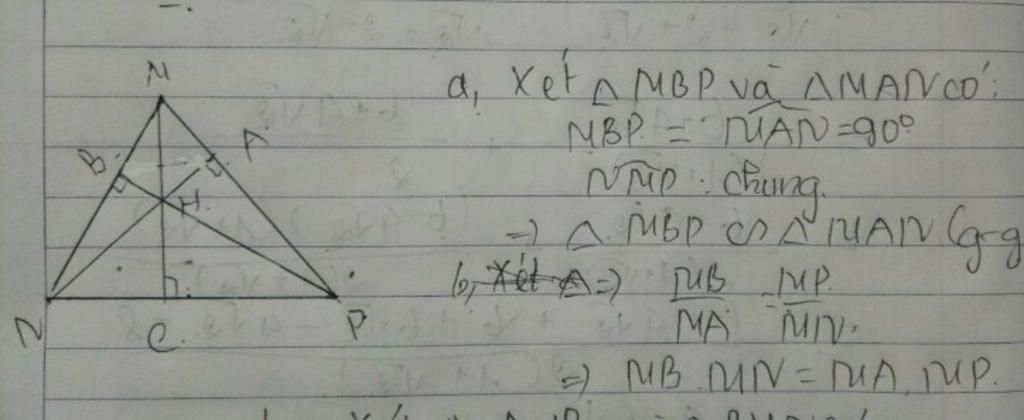 M
B
A
H
N
C
P
a, Xét △ MBP và △MAN có:
MBP = MAN = 90°
NMP : chung.
=) △ MBP ∽ △ MAN (g-g
b, =) MB/MA = MP/MN.
=) MB.MN = MA.MP.